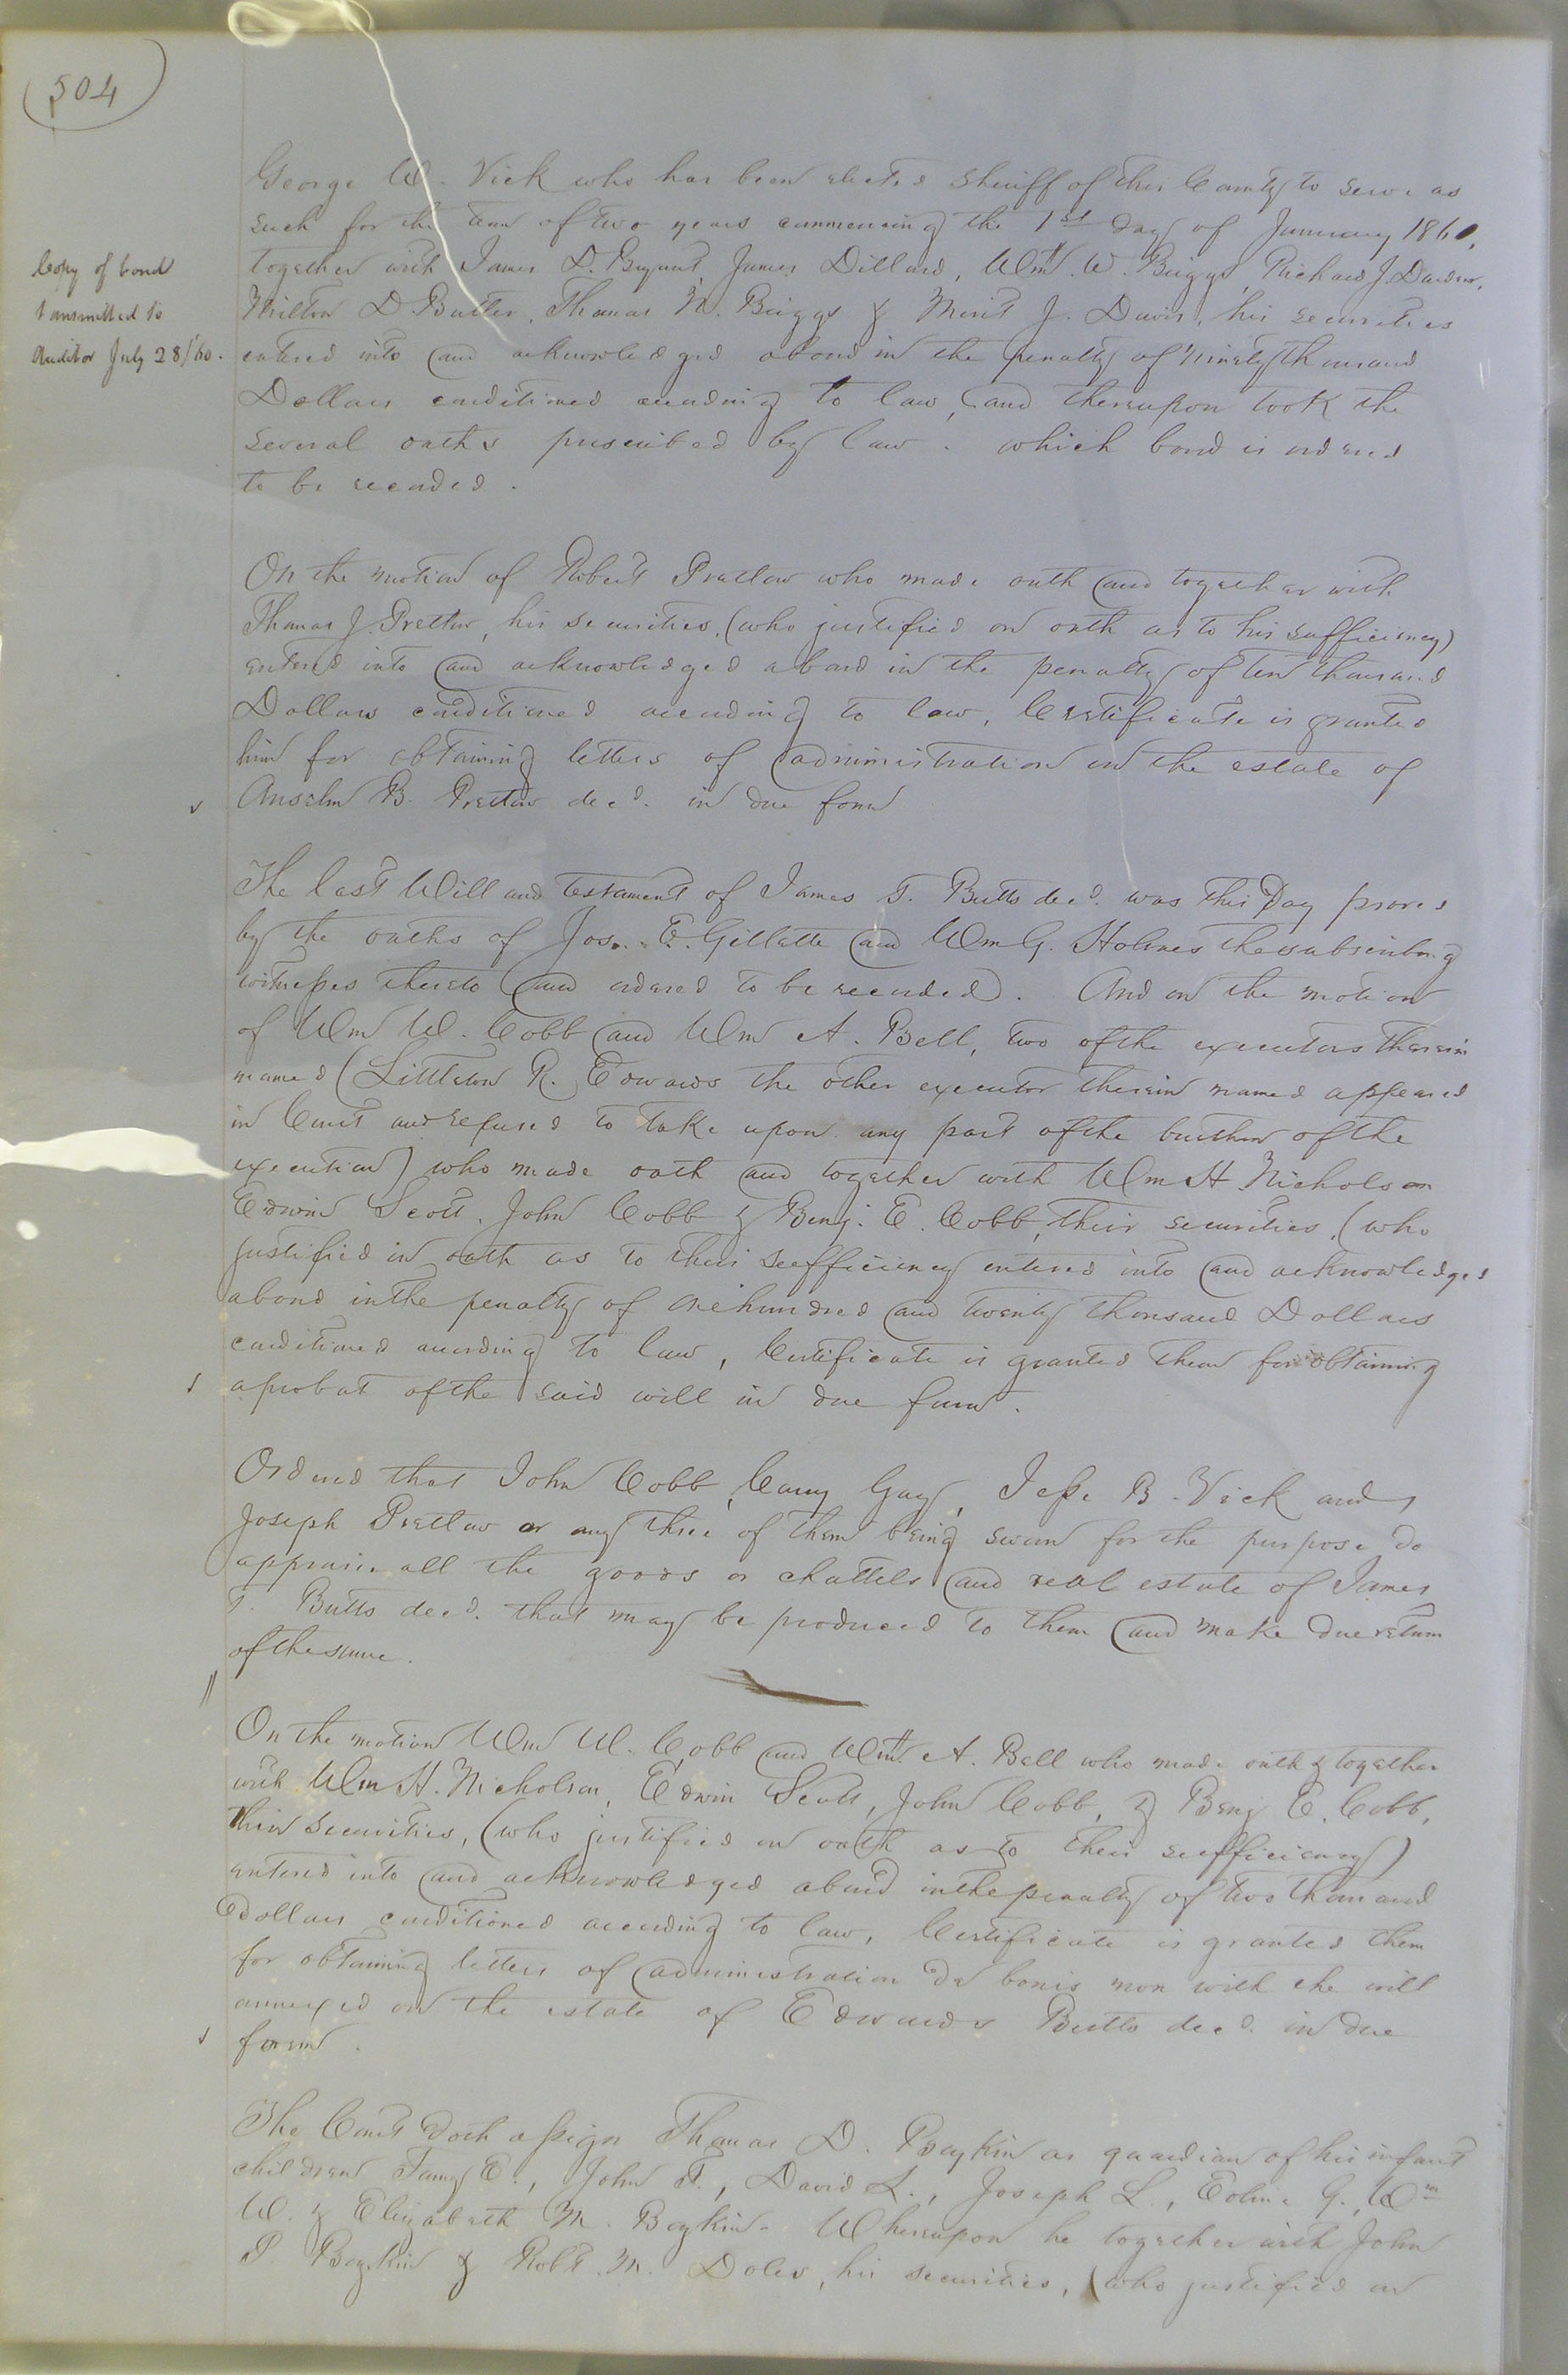 504
George W. Vick who has been elected Sheriff of this County to serve as
such for the term of two years commencing the 1st day of January 1860,
Copy of bond
transmitted to
Auditor July 28/60.
together with James D. Bryant, James Dillard, Wm. W. Briggs, Richard J. Darden,
Milton D Butler, Thomas N. Briggs & Merit J. Davis, his securities
entered into and acknowledged a bond in the penalty of ninety thousand
Dollars conditioned according to law, and thereupon took the
several oaths prescribed by law. which bond is ordered
to be recorded.
On the motion of Robert Pretlow who made oath and together with
Thomas J. Pretlow, his securities, (who justified on oath as to his sufficiency)
entered into and acknowledged a bond in the penalty of ten thousand
Dollars conditioned according to law, Certificate is granted
him for obtaining letters of administration on the estate of
Anselm B. Pretlow decd. in due form
The last Will and testament of James T. Butts decd. was this Day proved
by the oaths of Jos. E. Gillette and Wm G. Holmes the subscribing
witnesses thereto and ordered to be recorded. And on the motion
of Wm W. Cobb and Wm A. Bell, two of the executors therein
named (Littleton R. Edwards the other executor therein named appeared
in Court and refused to take upon any part of the burthen of the
execution) who made oath and together with Wm H Nicholson
Edwin Scott, John Cobb & Benj. E. Cobb, their securities, (who
justified on oath as to their sufficiency entered into and acknowledged
a bond in the penalty of one hundred and twenty thousand Dollars
conditioned according to law, Certificate is granted them for obtaining
a probat of the said will in due form.
Ordered that John Cobb, Gay, Jesse B. Vick and
Joseph Pretlow or any three of them being sworn for the purpose do
appraise all the goods or chattels and real estate of James
T. Butts decd. that may be produced to them and make due return
of the same.
On the motion Wm W. Cobb and Wm. A. Bell who made oath & together
with Wm H. Nicholson, Edwin Scott, John Cobb, & Benj E. Cobb,
their securities, (who justified on oath as to their sufficiency)
entered into and acknowledged a bond in the penalty of two thousand
dollars conditioned according to law, Certificate is granted them
for obtaining letters of administration de bonis non with the will
annexed on the estate of Edwards Butts decd. in due
form.
The Court doth assign Thomas D. Boykin as guardian of his infant
children E., John T., David L., Joseph L., G., Wm
W. & Elizabeth M. Boykin. Whereupon he together with John
P. Boykin & Robt. M. Doles, his securities, (who justified on